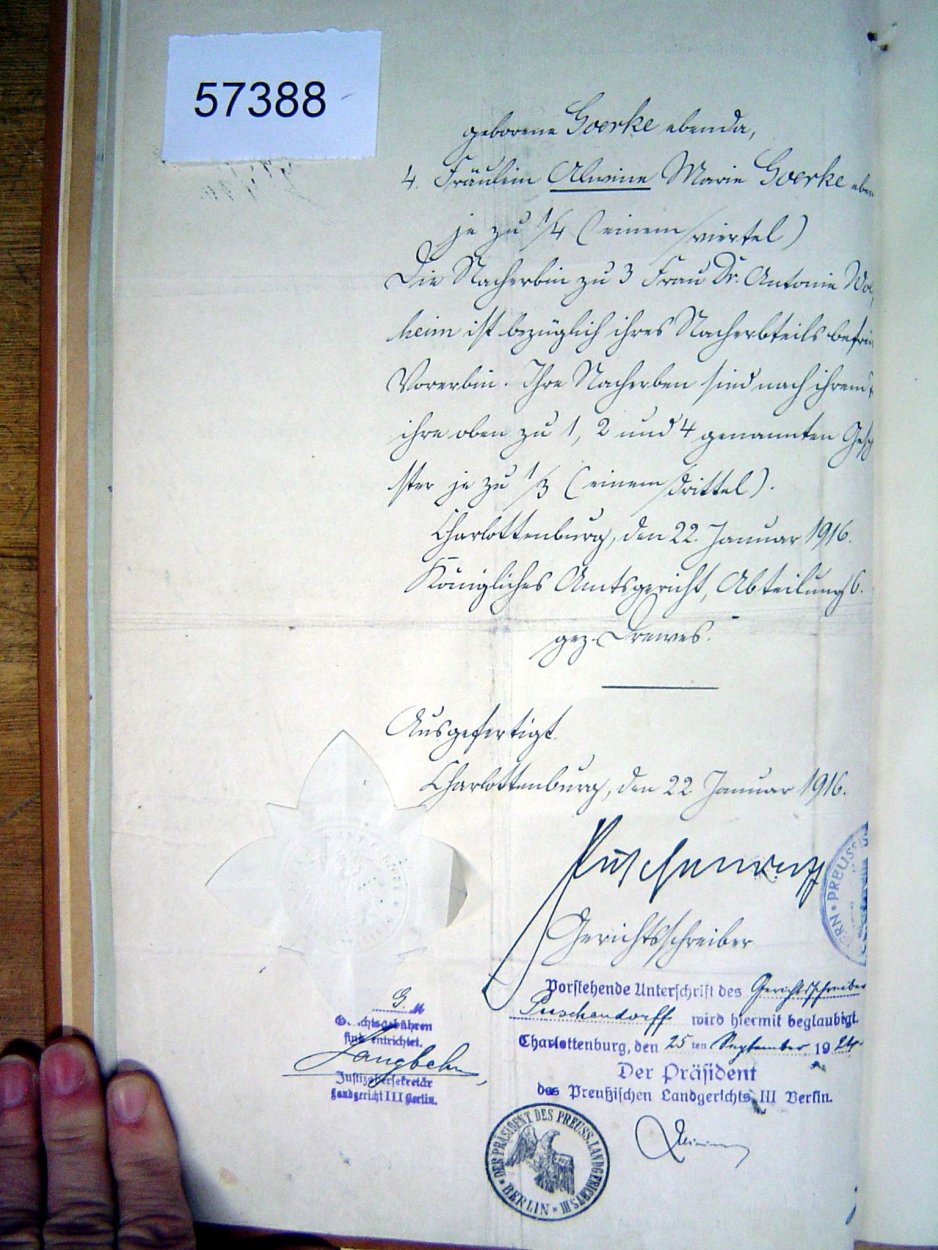 57388
geborene Goerke ebenda,
4. Fräulein Alwine Marie Goerke eben
je zu 1/4 (einem viertel)
Die Nacherbin zu 3 Frau Dr. Antonie Wol
heim ist bezüglich ihres Nacherbteils befrei
Vorerbin. Ihre Nacherben sind nach ihrem
ihre oben zu 1, 2 und 4 genannten Gesch
ster je zu 1/3 (einem drittel).
Charlottenburg, den 22. Januar 1916.
Königliches Amtsgericht, Abteilung 6.
gez. Drewes.
Ausgefertigt
Charlottenburg, den 22 Januar 1916.
Puschendorff
Gerichtsschreiber
Vorstehende Unterschrift des Gerichtsschreiber
Puschendorff wird hiermit beglaubigt.
Charlottenburg, den 25ten September 192
Der Präsident
des Preußischen Landgerichts III Berlin.
G. M
Gerichtsgebühren
sind entrichtet.
Langbehn
Justizobersekretär
Landgericht III Berlin.
DER PRÄSIDENT DES PREUSS. LANDGERICHTS III
BERLIN
ERN • PREUSS